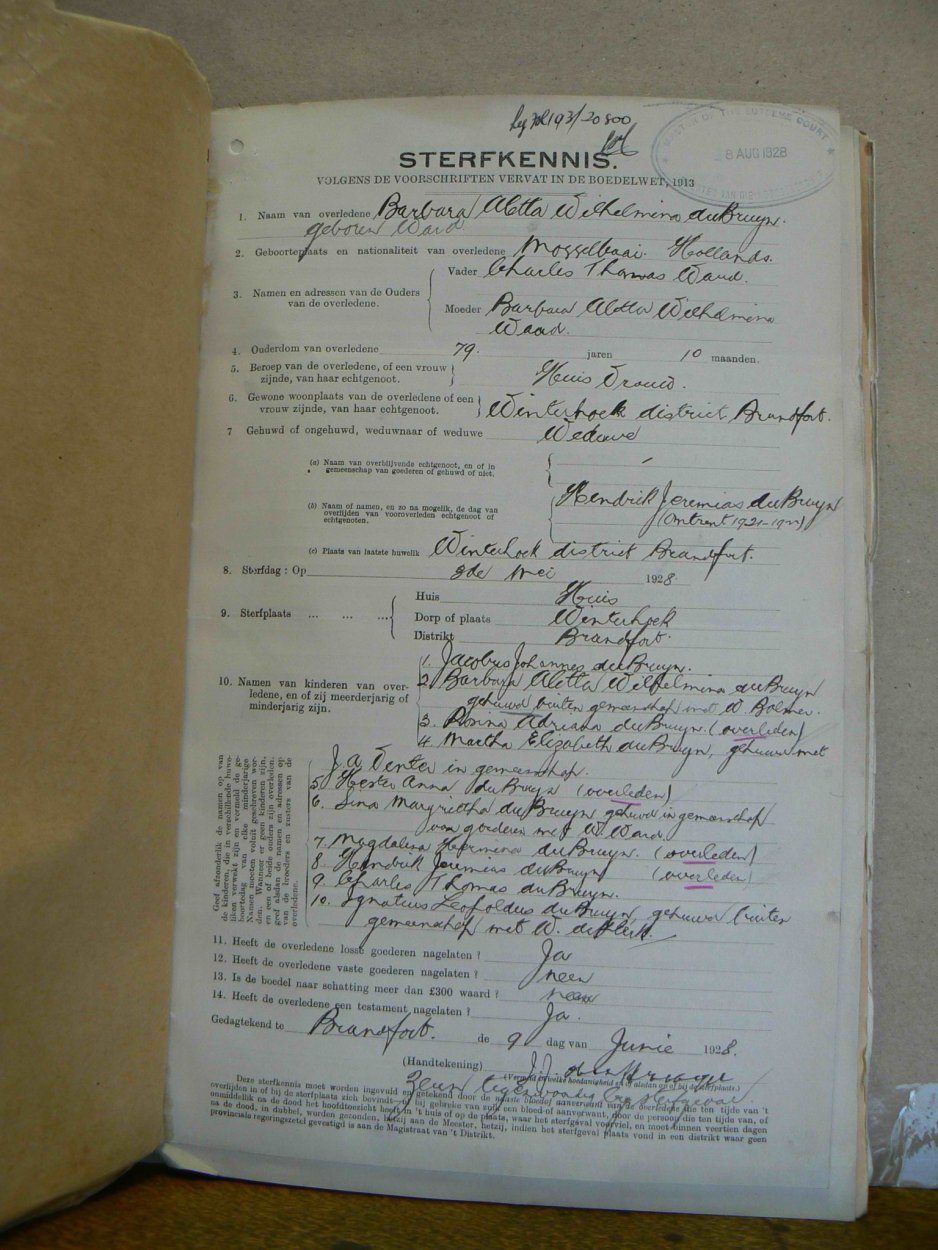 STERFKENNIS.
MASTER OF THE SUPREME COURT
8 AUG 1928
VOLGENS DE VOORSCHRIFTEN VERVAT IN DE BOEDELWET, 1913
1. Naam van overledene Barbara Aletta Wilhelmina du Bruyn.
geboren Ward.
2. Geboorteplaats en nationaliteit van overledene Mosselbaai. Hollands.
3. Namen en adressen van de Ouders van de overledene.
Vader Charles Thomas Ward.
Moeder Barbara Aletta Wilhelmina
Ward.
4. Ouderdom van overledene 79. jaren 10 maanden.
5. Beroep van de overledene, of een vrouw
zijnde, van haar echtgenoot. Huis Vrouw.
6. Gewone woonplaats van de overledene of een
vrouw zijnde, van haar echtgenoot. Winterhoek district Brandfort.
7 Gehuwd of ongehuwd, weduwnaar of weduwe Weduwe
(a) Naam van overblijvende echtgenoot, en of in
gemeenschap van goederen of gehuwd of niet.
(b) Naam of namen, en zo na mogelik, de dag van
overlijden van vooroverleden echtgenoot of
echtgenoten.
Hendrik Jeremias du Bruyn
(Omtrent 1921-1922)
(c) Plaats van laatste huwelik Winterhoek district Brandfort.
8. Sterfdag : Op 9de Mei 1928
9. Sterfplaats ... ... ...
Huis Huis
Dorp of plaats Winterhoek
Distrikt Brandfort.
10. Namen van kinderen van over-
ledene, en of zij meerderjarig of
minderjarig zijn.
1. Jacobus Johannes du Bruyn.
2. Barbara Aletta Wilhelmina du Bruyn
gehuwd buiten gemeenschap met W. Bolmer.
3. Rosina Adriana du Bruyn. (overleden)
4. Martha Elizabeth du Bruyn, gehuwd met
J. A. Venter in gemeenschap.
5. Hester Anna du Bruyn (overleden)
6. Lina Margrietha du Bruyn gehuwd in gemeenschap
van goederen met W. Ward.
7. Magdalena Hermina du Bruyn. (overleden)
8. Hendrik Jeremias du Bruyn (overleden)
9. Charles Thomas du Bruyn.
10. Ignatius Leopoldus du Bruyn, gehuwd buiten
gemeenschap met W. de Klerk.
Geef afzonderlik de namen op van
de kinderen, die in verschillende huwe-
liken verwekt zijn en vermeld de ge-
boortedag van elke minderjarige
Namen moeten voluit geschreven wor-
den. Wanneer er geen kinderen zijn,
en een of beide ouders zijn overleden,
geef alsdan de namen en adressen op
van de broeders en zusters van de
overledene.
11. Heeft de overledene losse goederen nagelaten ? Ja
12. Heeft de overledene vaste goederen nagelaten ? neen
13. Is de boedel naar schatting meer dan £300 waard ? neen
14. Heeft de overledene een testament nagelaten ? Ja.
Gedagtekend te Brandfort. de 9 dag van Junie 1928.
(Handtekening)
(Vermeld in welke hoedanigheid en of alsdan of bij de sterfplaats.)
Deze sterfkennis moet worden ingevuld en getekend door de naaste bloed of aanverwant van de overledene die ten tijde van 't
overlijden in of bij de sterfplaats zich bevindt of bij gebreke van zulk een bloed of aanverwant, door de persoon die ten tijde van, of
onmiddelik na de dood het hoofdtoezicht heeft in 't huis of op de plaats, waar het sterfgeval voorviel, en moet binnen veertien dagen
na de dood, in dubbel, worden gezonden, hetzij aan de Meester, hetzij, indien het sterfgeval plaats vond in een distrikt waar geen
provinciale regeringszetel gevestigd is aan de Magistraat van 't Distrikt.